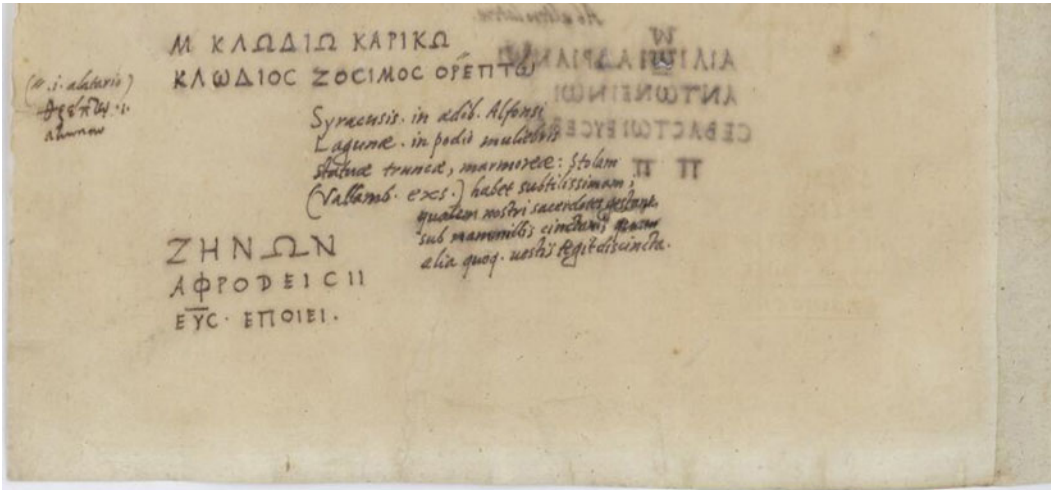 Μ ΚΛΩΔΙΩ ΚΑΡΙΚΩ
ΚΛΩΔΙΟC ΖΟCΙΜΟC ΟΡΕΠΤΩ
(H. i. alatario)
θρεπτῳ. i.
alumno
Syracusis. in ædib. Alfonsi
Lagunæ. in podio muliebris
statuæ truncæ, marmoreæ: Stolam
(Vallamb. exs.) habet subtilissimam;
qualem nostri sacerdotes gestant,
sub mammillis cinctam;
alia quoq. uestis tegit discincta.
ΖΗΝΩΝ
ΑΦΡΟDΕΙCΙΙ
ΕΥC· ΕΠΟΙΕΙ.